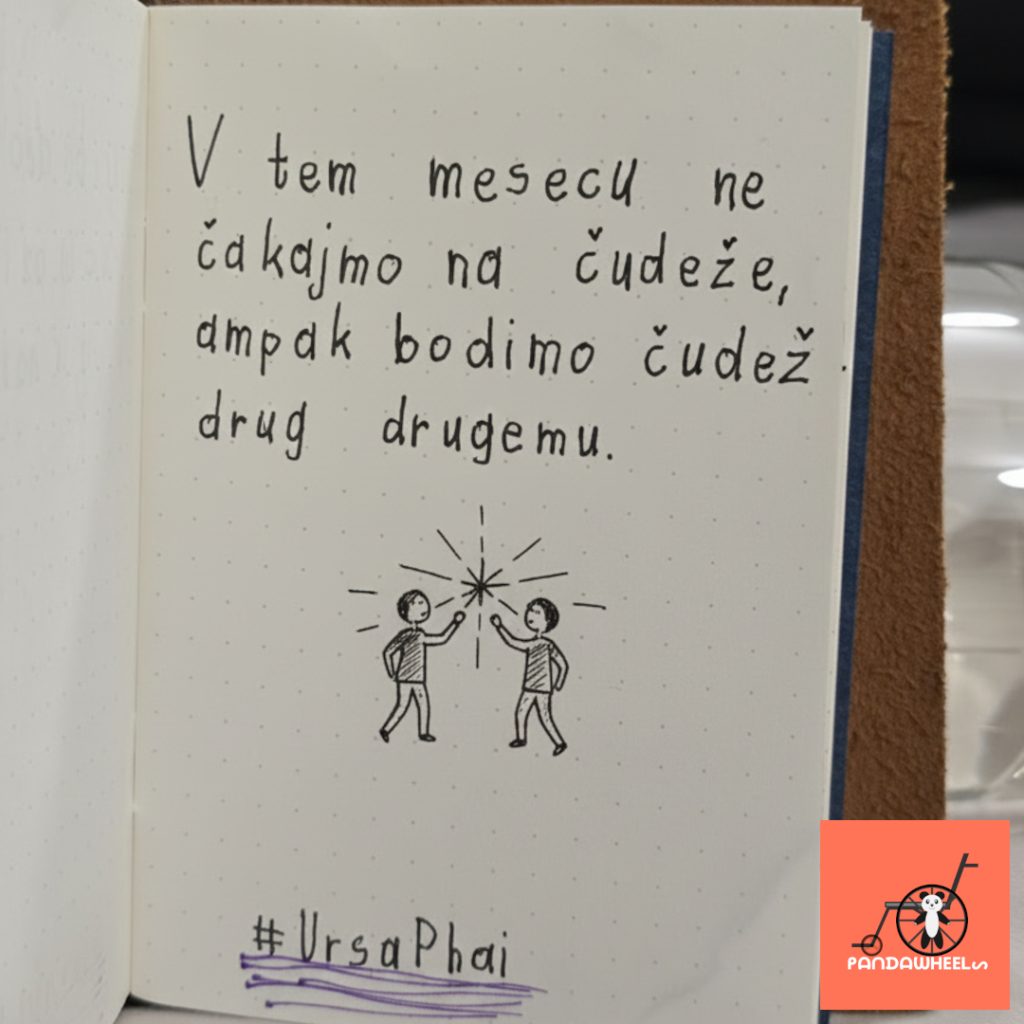 V tem mesecu ne
čakajmo na čudeže,
ampak bodimo čudež
drug drugemu.
#UrsaPhai
PANDAWHEELS